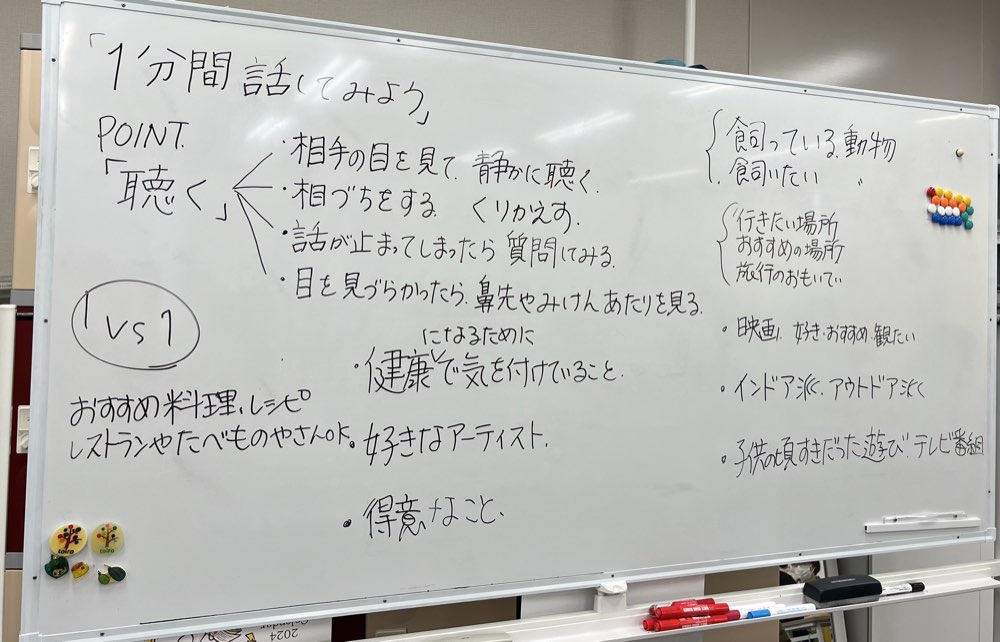 「1分間 話してみよう」
POINT.
「聴く」
・相手の目を見て、静かに聴く。
・相づちをする。くりかえす。
・話が止まってしまったら 質問してみる。
・目を見づらかったら、鼻先やみけんあたりを見る。
1 vs 1
になるために
・健康で気を付けていること。
おすすめ料理、レシピ
レストランやたべものやさんOK。
・好きなアーティスト。
・得意なこと、
飼っている動物
飼いたい 〃
行きたい場所
おすすめの場所
旅行のおもいで
・映画、好き・おすすめ・観たい
・インドア派、アウトドア派
・子供の頃すきだった遊び、テレビ番組
toiro
toiro
2024
Calendar